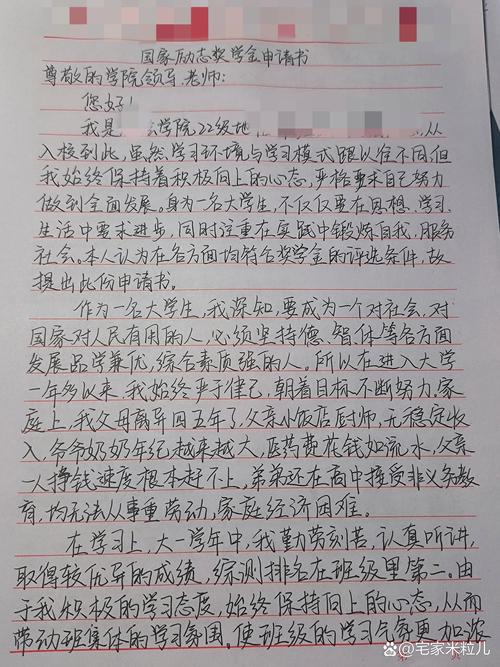 国家励志奖学金申请书
尊敬的学院领导、老师:
您好!
我是 学院22级地 从
入校到此,虽然学习环境与学习模式跟以往不同,但
我始终保持着积极向上的心态,严格要求自己努力
做到全面发展。身为一名大学生,不仅仅要在思想、学习、
生活中要求进步,同时注重在实践中锻炼自我,服务
社会。本人认为在各方面均符合奖学金的评选条件,故
提出此份申请书。
作为一名大学生,我深知,要成为一个对社会,对
国家对人民有用的人,必须坚持德、智、体等各方面
发展品学兼优,综合素质强的人。所以在进入大学
一年多以来,我始终严于律己,朝着目标不断努力。家
庭上,我父母离异四五年了,父亲小饭店厨师,无稳定收
入,爷爷奶奶年纪越来越大,医药费花钱如流水,父亲
一人挣钱速度根本赶不上,弟弟还在高中接受非义务教
育,均无法从事重劳动,家庭经济困难。
在学习上,大一学年中,我勤劳刻苦,认真听讲,
取得较优异的成绩,综测排名在班级里第二。由
于我积极的学习态度,始终保持向上的心态,从而
带动班集体的学习氛围。使班级的学习气氛更加浓
@宅家米粒儿